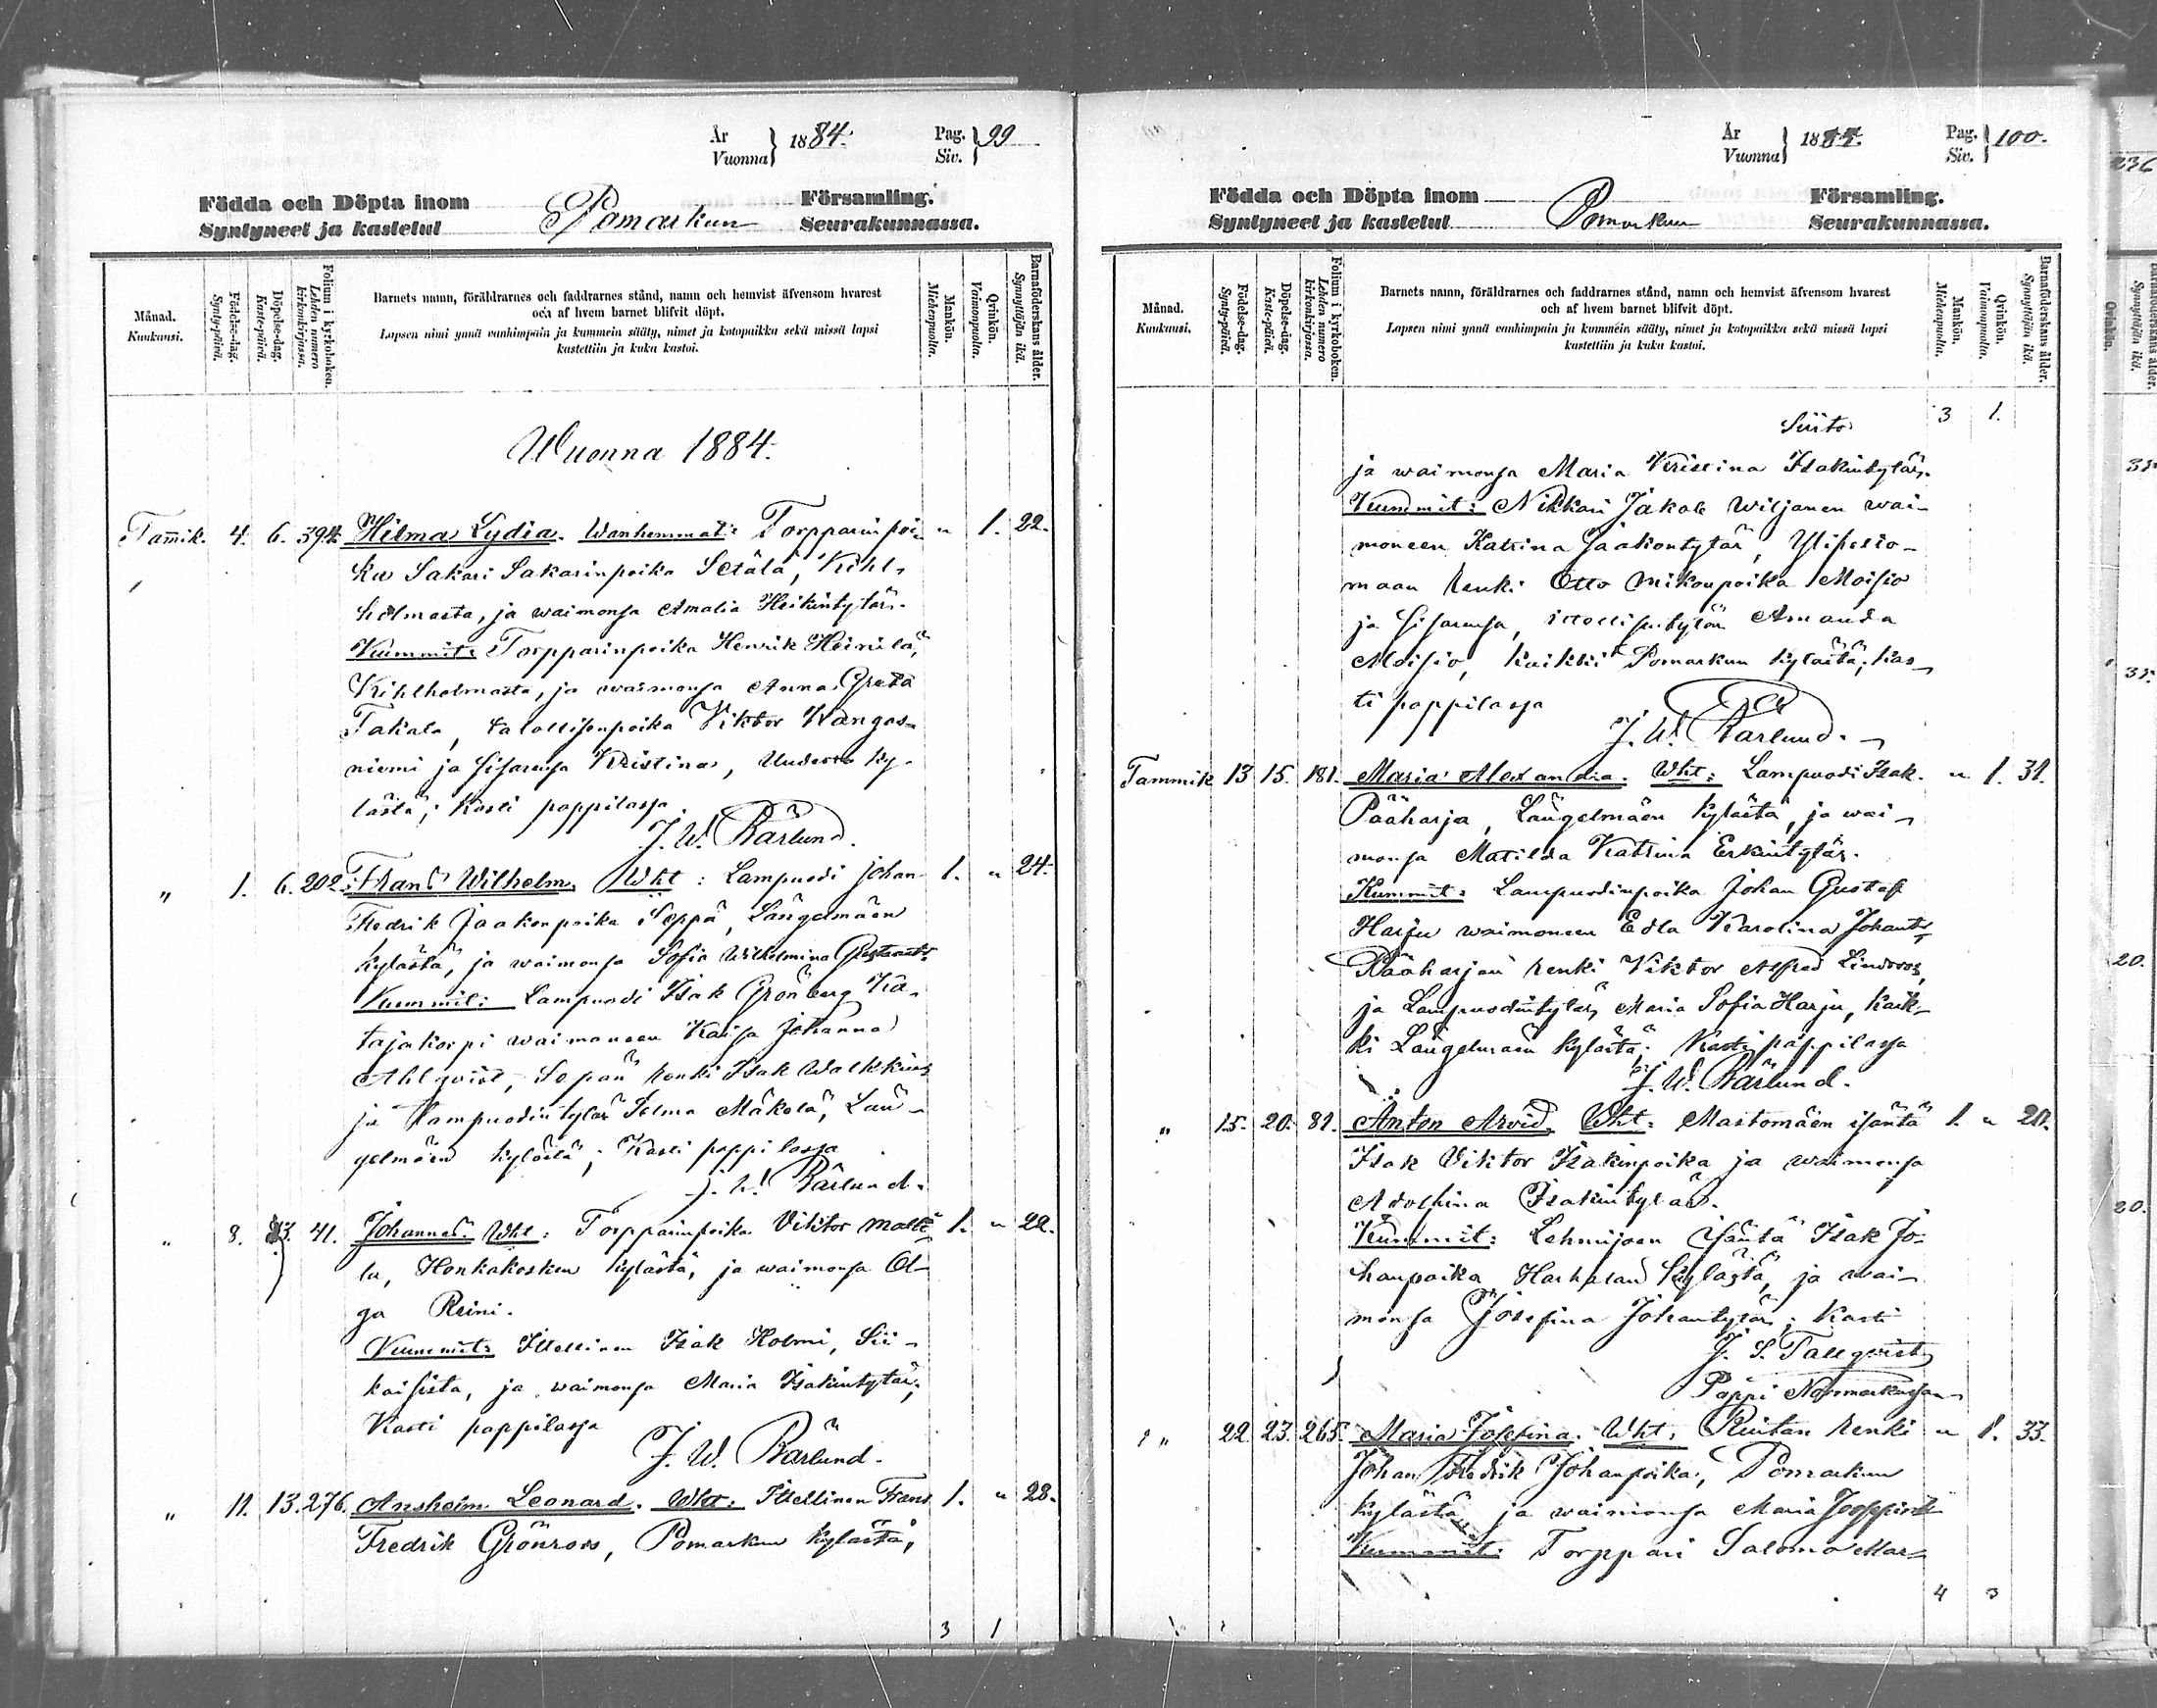 År
Vuonna } 1884.
Pag.
Siv. } 99
Födda och Döpta inom
Syntyneet ja kastetut
Pomarkun
Församling.
Seurakunnassa.
Månad.
Kuukausi.
Födelse-dag.
Synty-päivä.
Döpelse-dag.
Kaste-päivä.
Folium i kyrkoboken.
Lehden numero
kirkonkirjassa.
Barnets namn, föräldrarnes och faddrarnes stånd, namn och hemvist äfvensom hvarest
och af hvem barnet blifvit döpt.
Lapsen nimi ynnä vanhimpain ja kummein sääty, nimet ja kotopaikka sekä missä lapsi
kastettiin ja kuka kastoi.
Mankön.
Miehenpuolta.
Qvinkön.
Vaimonpuolta.
Barnaföderskans ålder.
Synnyttäjän ikä.
Wuonna 1884.
Tammik. 4. 6. 394. Hilma Lydia. Wanhemmat: Torpparinpoi- " 1. 22.
ka Sakari Sakarinpoika Setälä, Kihl-
holmasta, ja waimonsa Amalia Heikintytär.
Kummit: Torpparinpoika Henrik Heinilä,
Kihlholmasta, ja waimonsa Anna Greta
Takala, talollisenpoika Viktor Kangas-
niemi ja sisarensa Kristina, ky-
lästä; Kasti pappilassa
J. W. Bärlund.
" 1. 6. 202. Frans Wilhelm. Wht: Lampuodi Johan 1. " 24.
Fredrik Jaakonpoika Seppä, Längelmäen
kylästä, ja waimonsa Sofia Wilhelmina
Kummit: Lampuodi Isak Grönberg Ka-
tajakorpi waimoneen Kaisa Johanna
Ahlqvist, Sepän renki Isak
ja Lampuodintytär Selma Mäkelä, Län-
gelmäen kylästä; Kasti pappilassa
J. W. Bärlund.
" 8. 13. 41. Johannes. Wht: Torpparinpoika Viktor Matti- 1. " 22.
la, Honkakosken kylästä, ja waimonsa Ol-
ga Reini.
Kummit: Itsellinen Isak Holmi, Sii-
kaisista, ja waimonsa Maria Isakintytär;
Kasti pappilassa
J. W. Bärlund.
" 11. 13. 276. Anshelm Leonard. Wht: Itsellinen Frans 1. " 28.
Fredrik Grönroos, Pomarkun kylästä,
3 1
År
Vuonna } 1884.
Pag.
Siv. } 100.
Födda och Döpta inom
Syntyneet ja kastetut
Pomarkun
Församling.
Seurakunnassa.
Månad.
Kuukausi.
Födelse-dag.
Synty-päivä.
Döpelse-dag.
Kaste-päivä.
Folium i kyrkoboken.
Lehden numero
kirkonkirjassa.
Barnets namn, föräldrarnes och faddrarnes stånd, namn och hemvist äfvensom hvarest
och af hvem barnet blifvit döpt.
Lapsen nimi ynnä vanhimpain ja kummein sääty, nimet ja kotopaikka sekä missä lapsi
kastettiin ja kuka kastoi.
Mankön.
Miehenpuolta.
Qvinkön.
Vaimonpuolta.
Barnaföderskans ålder.
Synnyttäjän ikä.
Siirto 3 1.
ja waimonsa Maria Kristina Isakintytär.
Kummit: Nikkari Jakob Wiljanen wai-
moneen Katrina Jaakontytär,
maan renki Otto Mikonpoika Moisio
ja sisarensa, Amanda
Moisio, kaikki Pomarkun kylästä; Kas-
ti pappilassa
J. W. Bärlund.
Tammik 13 15. 181. Maria Alexandra. Wht: Lampuodi Isak " 1. 31.
Pääharja, Längelmäen kylästä, ja wai-
monsa Matilda Katrina Erkintytär.
Kummit: Lampuodinpoika Johan Gustaf
Harju waimoneen Edla Karolina Johantr
Pääharjan renki Viktor Alfred Lindroos,
ja Lampuodintytär Maria Sofia Harju, kaik-
ki Längelmäen kylästä; Kasti pappilassa
J. W. Bärlund.
" 15. 20. 81. Anton Arvid. Wht: Mastomäen isäntä 1. " 20.
Isak Viktor Isakinpoika ja waimonsa
Adolfina Isakintytär.
Kummit: Lehmijoen isäntä Isak Jo-
hanpoika kylästä, ja wai-
monsa Josefina Johantytär; Kasti
J. S. Tallqvist
Pappi Normarkussa
" 22. 23. 265. Maria Josefina. Wht: renki " 1. 33.
Johan Fredrik Johanpoika, Pomarkun
kylästä ja waimonsa Maria
Kummit: Torppari Salomo Mar-
4 3